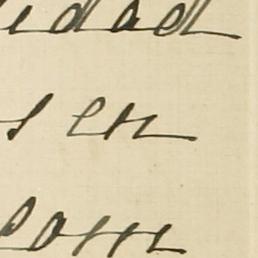 idad
s en
com